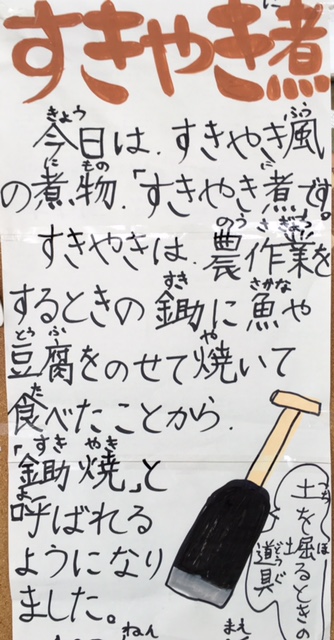 すきやき煮
今日は、すきやき風
の煮物、「すきやき煮です
すきやきは、農作業を
するときの鋤に魚や
豆腐をのせて焼いて
食べたことから、
「鋤焼」と
呼ばれる
ようになり
ました。
土を掘るときの
道具